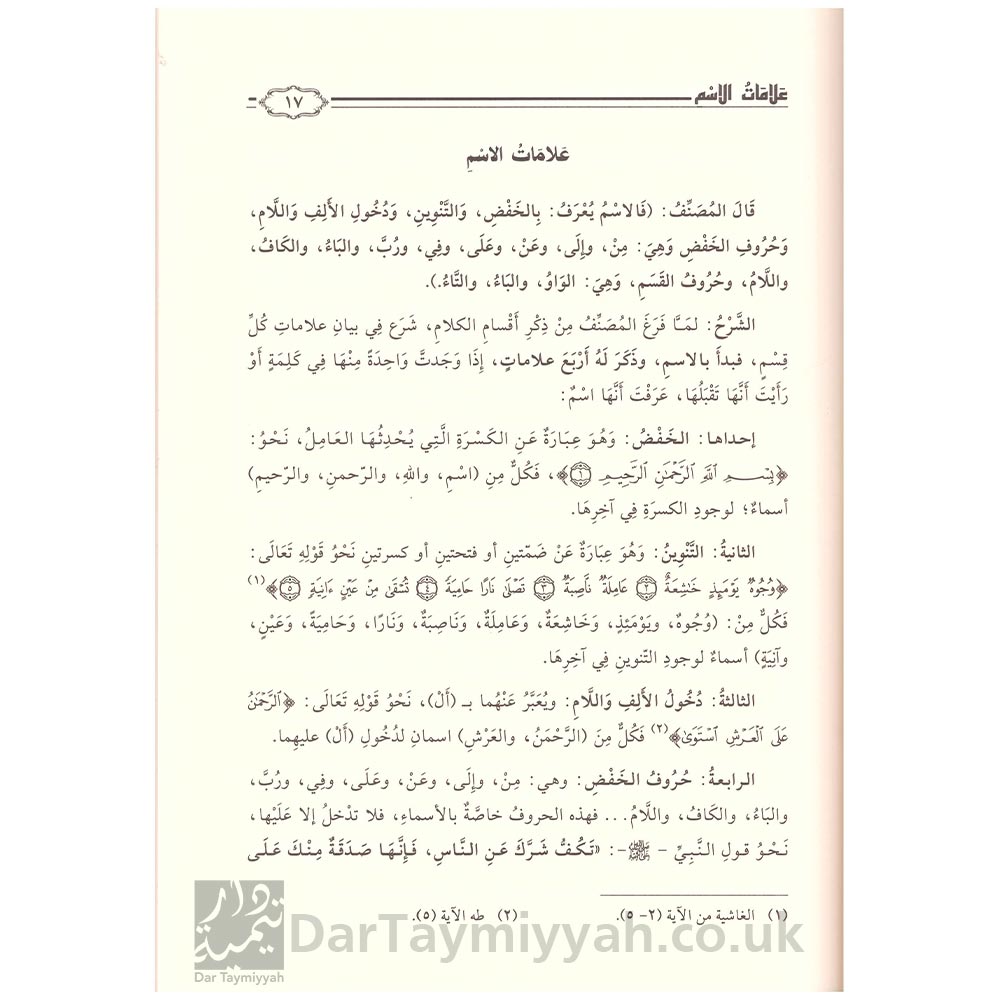 عَلَامَاتُ الِاسْمِ
١٧
عَلامَاتُ الاسْمِ
قَالَ المُصَنِّفُ: (فَالاسْمُ يُعْرَفُ: بِالخَفْضِ، وَالتَّنْوِينِ، وَدُخُولِ الأَلِفِ وَاللَّامِ،
وَحُرُوفِ الخَفْضِ وَهِيَ: مِنْ، وإِلَى، وعَنْ، وعَلَى، وفِي، ورُبَّ، والبَاءُ، والكَافُ،
واللَّامُ، وحُرُوفُ القَسَمِ، وَهِيَ: الوَاوُ، والبَاءُ، والتَّاءُ.).
الشَّرْحُ: لمَـَّا فَرَغَ المُصَنِّفُ مِنْ ذِكْرِ أَقْسامِ الكلامِ، شَرَع فِي بيانِ علاماتِ كُلِّ
قِسْمٍ، فبدأَ بالاسمِ، وذَكَرَ لَهُ أَرْبَعَ علاماتٍ، إِذَا وَجَدتَّ وَاحِدَةً مِنْهَا فِي كَلِمَةٍ أَوْ
رَأَيْتَ أَنَّهَا تَقْبَلُهَا، عَرَفْتَ أَنَّهَا اسْمٌ:
إحداها: الخَفْضُ: وَهُوَ عِبَارَةٌ عَنِ الكَسْرَةِ الَّتِي يُحْدِثُهَا العَامِلُ، نَحْوُ:
﴿بِسْمِ ٱللَّهِ ٱلرَّحْمَٰنِ ٱلرَّحِيمِ ١﴾، فَكُلٌّ مِنِ (اسْمِ، واللهِ، والرّحمنِ، والرّحيمِ)
أسماءٌ؛ لوجودِ الكسرَةِ فِي آخِرِهَا.
الثانيةُ: التَّنْوِينُ: وَهُوَ عِبَارَةٌ عَنْ ضَمّتينِ أو فتحتينِ أو كسرتينِ نَحْوُ قَوْلِهِ تَعَالَى:
﴿وُجُوهٌ يَوْمَئِذٍ خَٰشِعَةٌ ٢ عَامِلَةٌ نَّاصِبَةٌ ٣ تَصْلَىٰ نَارًا حَامِيَةً ٤ تُسْقَىٰ مِنْ عَيْنٍ ءَانِيَةٍ ٥﴾(١)
فَكُلٌّ مِنْ: (وُجُوهٌ، ويَوْمَئِذٍ، وَخَاشِعَةٌ، وَعَامِلَةٌ، وَنَاصِبَةٌ، وَنَارًا، وَحَامِيَةً، وَعَيْنٍ،
وآنِيَةٍ) أسماءٌ لوجودِ التّنوينِ فِي آخِرِهَا.
الثالثةُ: دُخُولُ الأَلِفِ وَاللَّامِ: ويُعَبَّرُ عَنْهُما بـ (أَلْ)، نَحْوُ قَوْلِهِ تَعَالَى: ﴿ٱلرَّحْمَٰنُ
عَلَى ٱلْعَرْشِ ٱسْتَوَىٰ﴾(٢) فَكُلٌّ مِنَ (الرَّحْمَنُ، والعَرْشِ) اسمانِ لدُخُولِ (أَلْ) عليهِما.
الرابعةُ: حُرُوفُ الخَفْضِ: وهي: مِنْ، وإِلَى، وعَنْ، وعَلَى، وفِي، ورُبَّ،
والبَاءُ، والكَافُ، واللَّامُ... فهذه الحروفُ خاصَّةٌ بالأسماءِ، فلا تدْخلُ إلا عَلَيْها،
نَحْوُ قولِ النَّبِيِّ - ﷺ -: «تَكُفُّ شَرَّكَ عَنِ النَّاسِ، فَإِنَّهَا صَدَقَةٌ مِنْكَ عَلَى
(١) الغاشية من الآية (٢- ٥).
(٢) طه الآية (٥).
دار تيمية
Dar Taymiyyah
DarTaymiyyah.co.uk